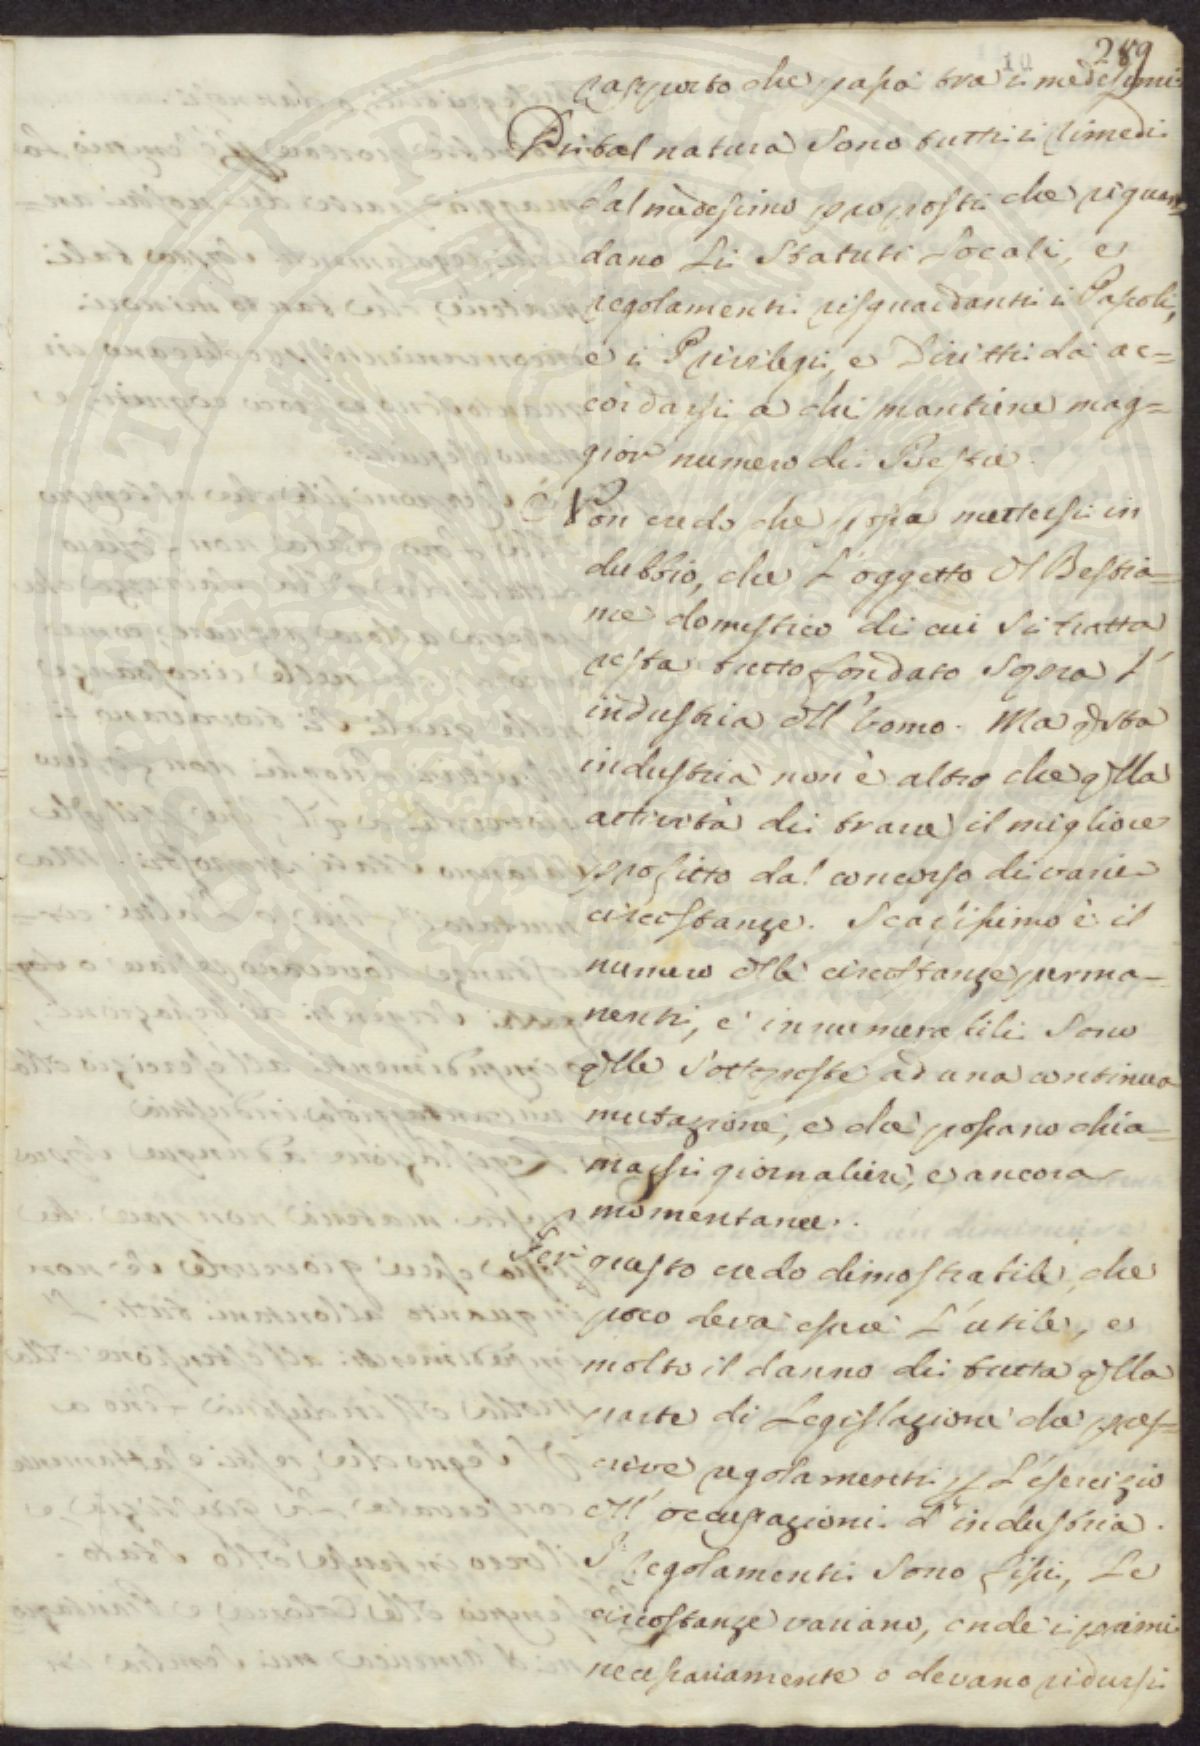 289
10
rapporto che passa tra i medesimi
Di tal natura sono tutti i rimedi
dal medesimo proposti che riguar-
dano Li Statuti Locali, e
regolamenti risguardanti i Pascoli,
e i Privilegi, e Diritti da ac=
cordarsi a chi mantiene mag=
gior numero di Bestie.
Non credo che possa mettersi in
dubbio, che L'oggetto del Bestia=
me domestico di cui si tratta
resta tutto fondato sopra L'
industria dell'Uomo. Ma qsta
industria non è altro che qlla
attività di trarre il migliore
profitto dal concorso di varie
circostanze. Scarsissimo è il
numero delle circostanze perma-
nenti, e innumerabili sono
qlle sottoposte ad una continua
mutazione, e che possano chia-
marsi giornaliere, e ancora
momentanee.
Per questo credo dimostrabile, che
poco deva essere L'utile, e
molto il danno di tutta qlla
parte di Legislazione che pres=
crive regolamenti p L'esercizio
dell'occupazioni d'industria.
I Regolamenti sono fissi, Le
circostanze variano, onde i primi
necessariamente o devano ridursi